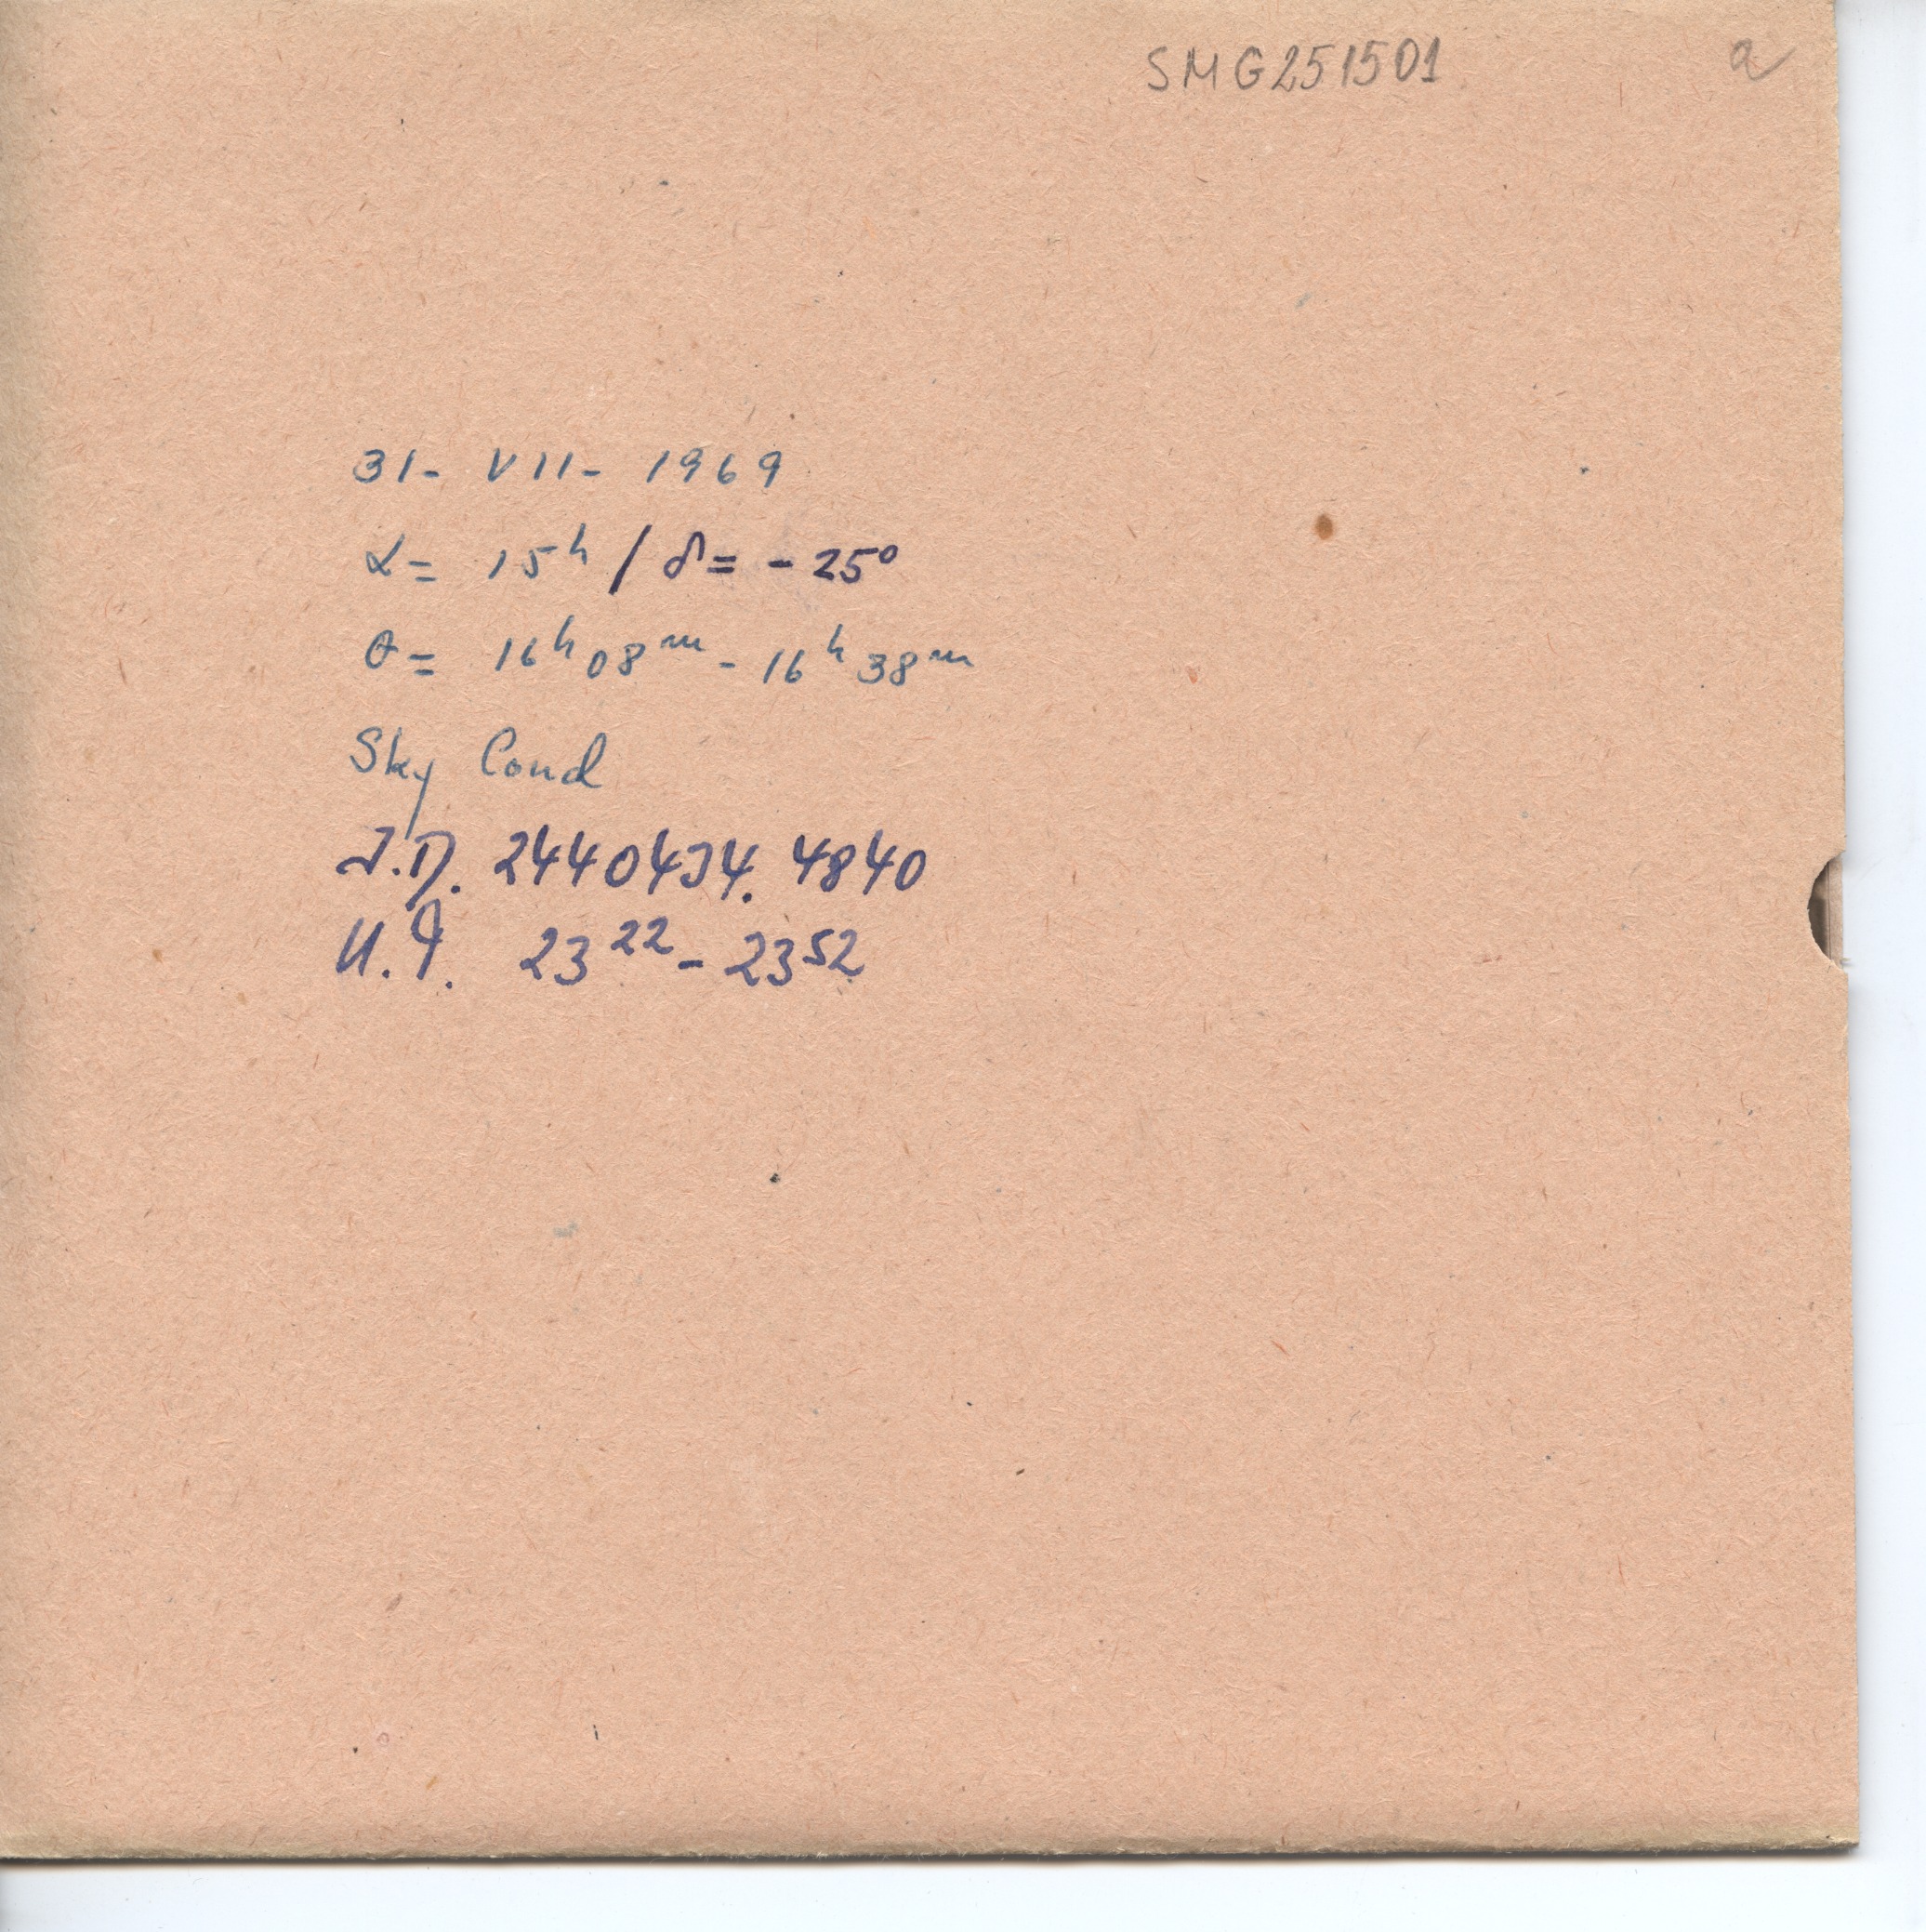 SMG251501 a
31- VII- 1969
α= 15ʰ / δ= - 25°
θ= 16ʰ08ᵐ - 16ʰ38ᵐ
Sky Cond
J.D. 2440434.4840
U.T. 23²² - 23⁵²